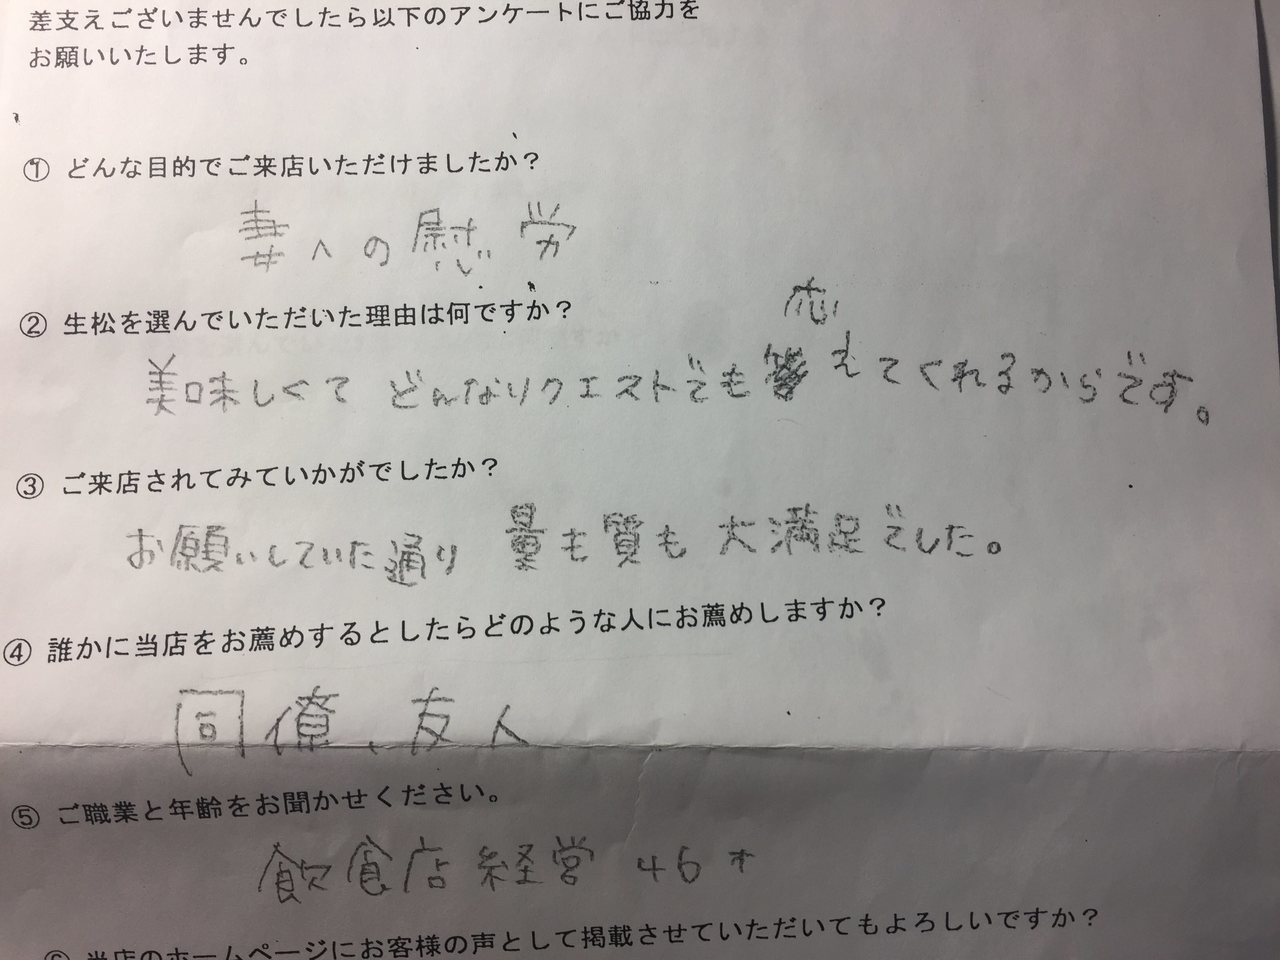 差支えございませんでしたら以下のアンケートにご協力を
お願いいたします。
① どんな目的でご来店いただけましたか？
妻への慰労
② 生松を選んでいただいた理由は何ですか？
美味しくて どんなリクエストでも応えてくれるからです。
③ ご来店されてみていかがでしたか？
お願いしていた通り 量も質も大満足でした。
④ 誰かに当店をお薦めするとしたらどのような人にお薦めしますか？
同僚、友人
⑤ ご職業と年齢をお聞かせください。
飲食店経営 46才
⑥ 当店のホームページにお客様の声として掲載させていただいてもよろしいですか？